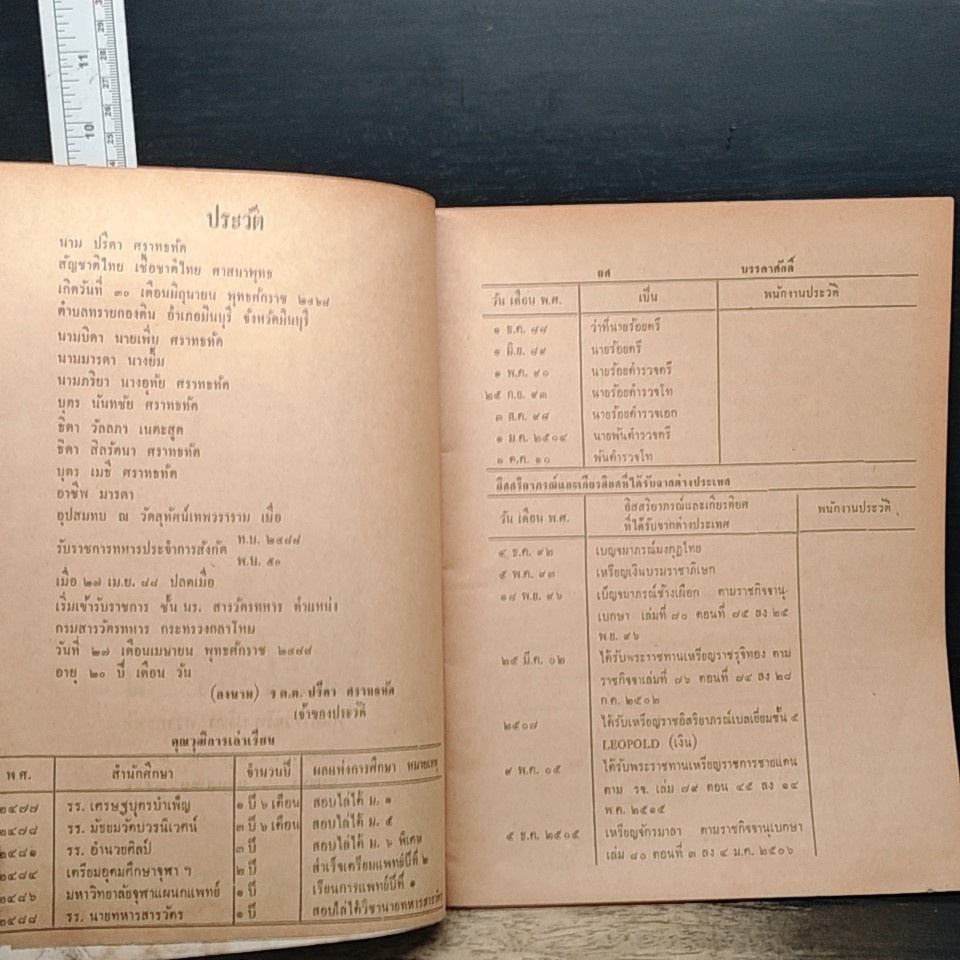 11
10
ประวัติ
นาม ปรีดา ศราทธทัต
สัญชาติไทย เชื้อชาติไทย ศาสนาพุทธ
เกิดวันที่ ๓๐ เดือนมิถุนายน พุทธศักราช ๒๔๖๘
ตำบลทรายกองดิน อำเภอมีนบุรี จังหวัดมีนบุรี
นามบิดา นายเพิ่ม ศราทธทัต
นามมารดา นางยิ้ม
นามภริยา นางอุทัย ศราทธทัต
บุตร นันทชัย ศราทธทัต
ธิดา วัลลภา เนตะสูต
ธิดา สิลรัตนา ศราทธทัต
บุตร เมธี ศราทธทัต
อาชีพ มารดา
อุปสมทบ ณ วัดสุทัศน์เทพวราราม เมื่อ
รับราชการทหารประจำการสังกัด ท.บ. ๒๔๘๘
พ.บ. ๕๐
เมื่อ ๒๗ เม.ย. ๘๘ ปลดเมื่อ
เริ่มเข้ารับราชการ ชั้น นร. สารวัตรทหาร ตำแหน่ง
กรมสารวัตรทหาร กระทรวงกลาโหม
วันที่ ๒๗ เดือนเมษายน พุทธศักราช ๒๔๘๘
อายุ ๒๐ ปี เดือน วัน
(ลงนาม) ร ต.ต. ปรีดา ศราทธทัต
เจ้าของประวัติ
คุณวุฒิการเล่าเรียน
พ ศ. สำนักศึกษา จำนวนปี ผลแห่งการศึกษา หมายเหตุ
๒๔๗๗ รร. เศรษฐบุตรบำเพ็ญ ๑ ปี ๖ เดือน สอบไล่ได้ ม. ๑
๒๔๗๘ รร. มัธยมวัดบวรนิเวศน์ ๓ ปี ๖ เดือน สอบไล่ได้ ม. ๕
๒๔๘๑ รร. อำนวยศิลป์ ๓ ปี สอบไล่ได้ ม. ๖ พิเศษ
๒๔๘๔ เตรียมอุดมศึกษาจุฬา ฯ ๒ ปี สำเร็จเตรียมแพทย์ปีที่ ๒
๒๔๘๖ มหาวิทยาลัยจุฬาแผนกแพทย์ ๑ ปี เรียนการแพทย์ปีที่ ๑
๒๔๘๘ รร. นายทหารสารวัตร ๑ ปี สอบไล่ได้วิชานายทหารสารวัตร
ยศ บรรดาศักดิ์
วัน เดือน พ.ศ. เป็น พนักงานประวัติ
๑ ธ.ค. ๘๘ ว่าที่นายร้อยตรี
๑ มิ.ย. ๘๙ นายร้อยตรี
๑ พ.ค. ๙๐ นายร้อยตำรวจตรี
๒๕ ก.ย. ๙๓ นายร้อยตำรวจโท
๓ ส.ค. ๙๘ นายร้อยตำรวจเอก
๑ ม.ค. ๒๕๐๔ นายพันตำรวจตรี
๑ ต.ค. ๑๐ พันตำรวจโท
อิสสริยาภรณ์และเกียรติยศที่ได้รับจากต่างประเทศ
วัน เดือน พ.ศ. อิสสริยาภรณ์และเกียรติยศ พนักงานประวัติ
ที่ได้รับจากต่างประเทศ
๔ ธ.ค. ๙๒ เบญจมาภรณ์มงกุฎไทย
๕ พ.ค. ๙๓ เหรียญเงินบรมราชาภิเษก
๑๘ พ.ย. ๙๖ เบ็ญจมาภรณ์ช้างเผือก ตามราชกิจจานุ-
เบกษา เล่มที่ ๗๐ ตอนที่ ๗๕ ลง ๒๕
พ.ย. ๙๖
๒๕ มี.ค. ๐๒ ได้รับพระราชทานเหรียญราชรุจิทอง ตาม
ราชกิจจาเล่มที่ ๗๖ ตอนที่ ๗๔ ลง ๒๘
ก.ค. ๒๕๐๒
๒๕๐๗ ได้รับเหรียญราชอิสริยาภรณ์เบลเยี่ยมชั้น ๕
LEOPOLD (เงิน)
๙ พ.ค. ๐๕ ได้รับพระราชทานเหรียญราชการชายแดน
ตาม รจ. เล่ม ๗๙ ตอน ๔๕ ลง ๑๔
พ.ค. ๒๕๑๕
๕ ธ.ค. ๒๕๐๕ เหรียญจักรมาลา ตามราชกิจจานุเบกษา
เล่ม ๘๐ ตอนที่ ๓ ลง ๔ ม.ค. ๒๕๐๖